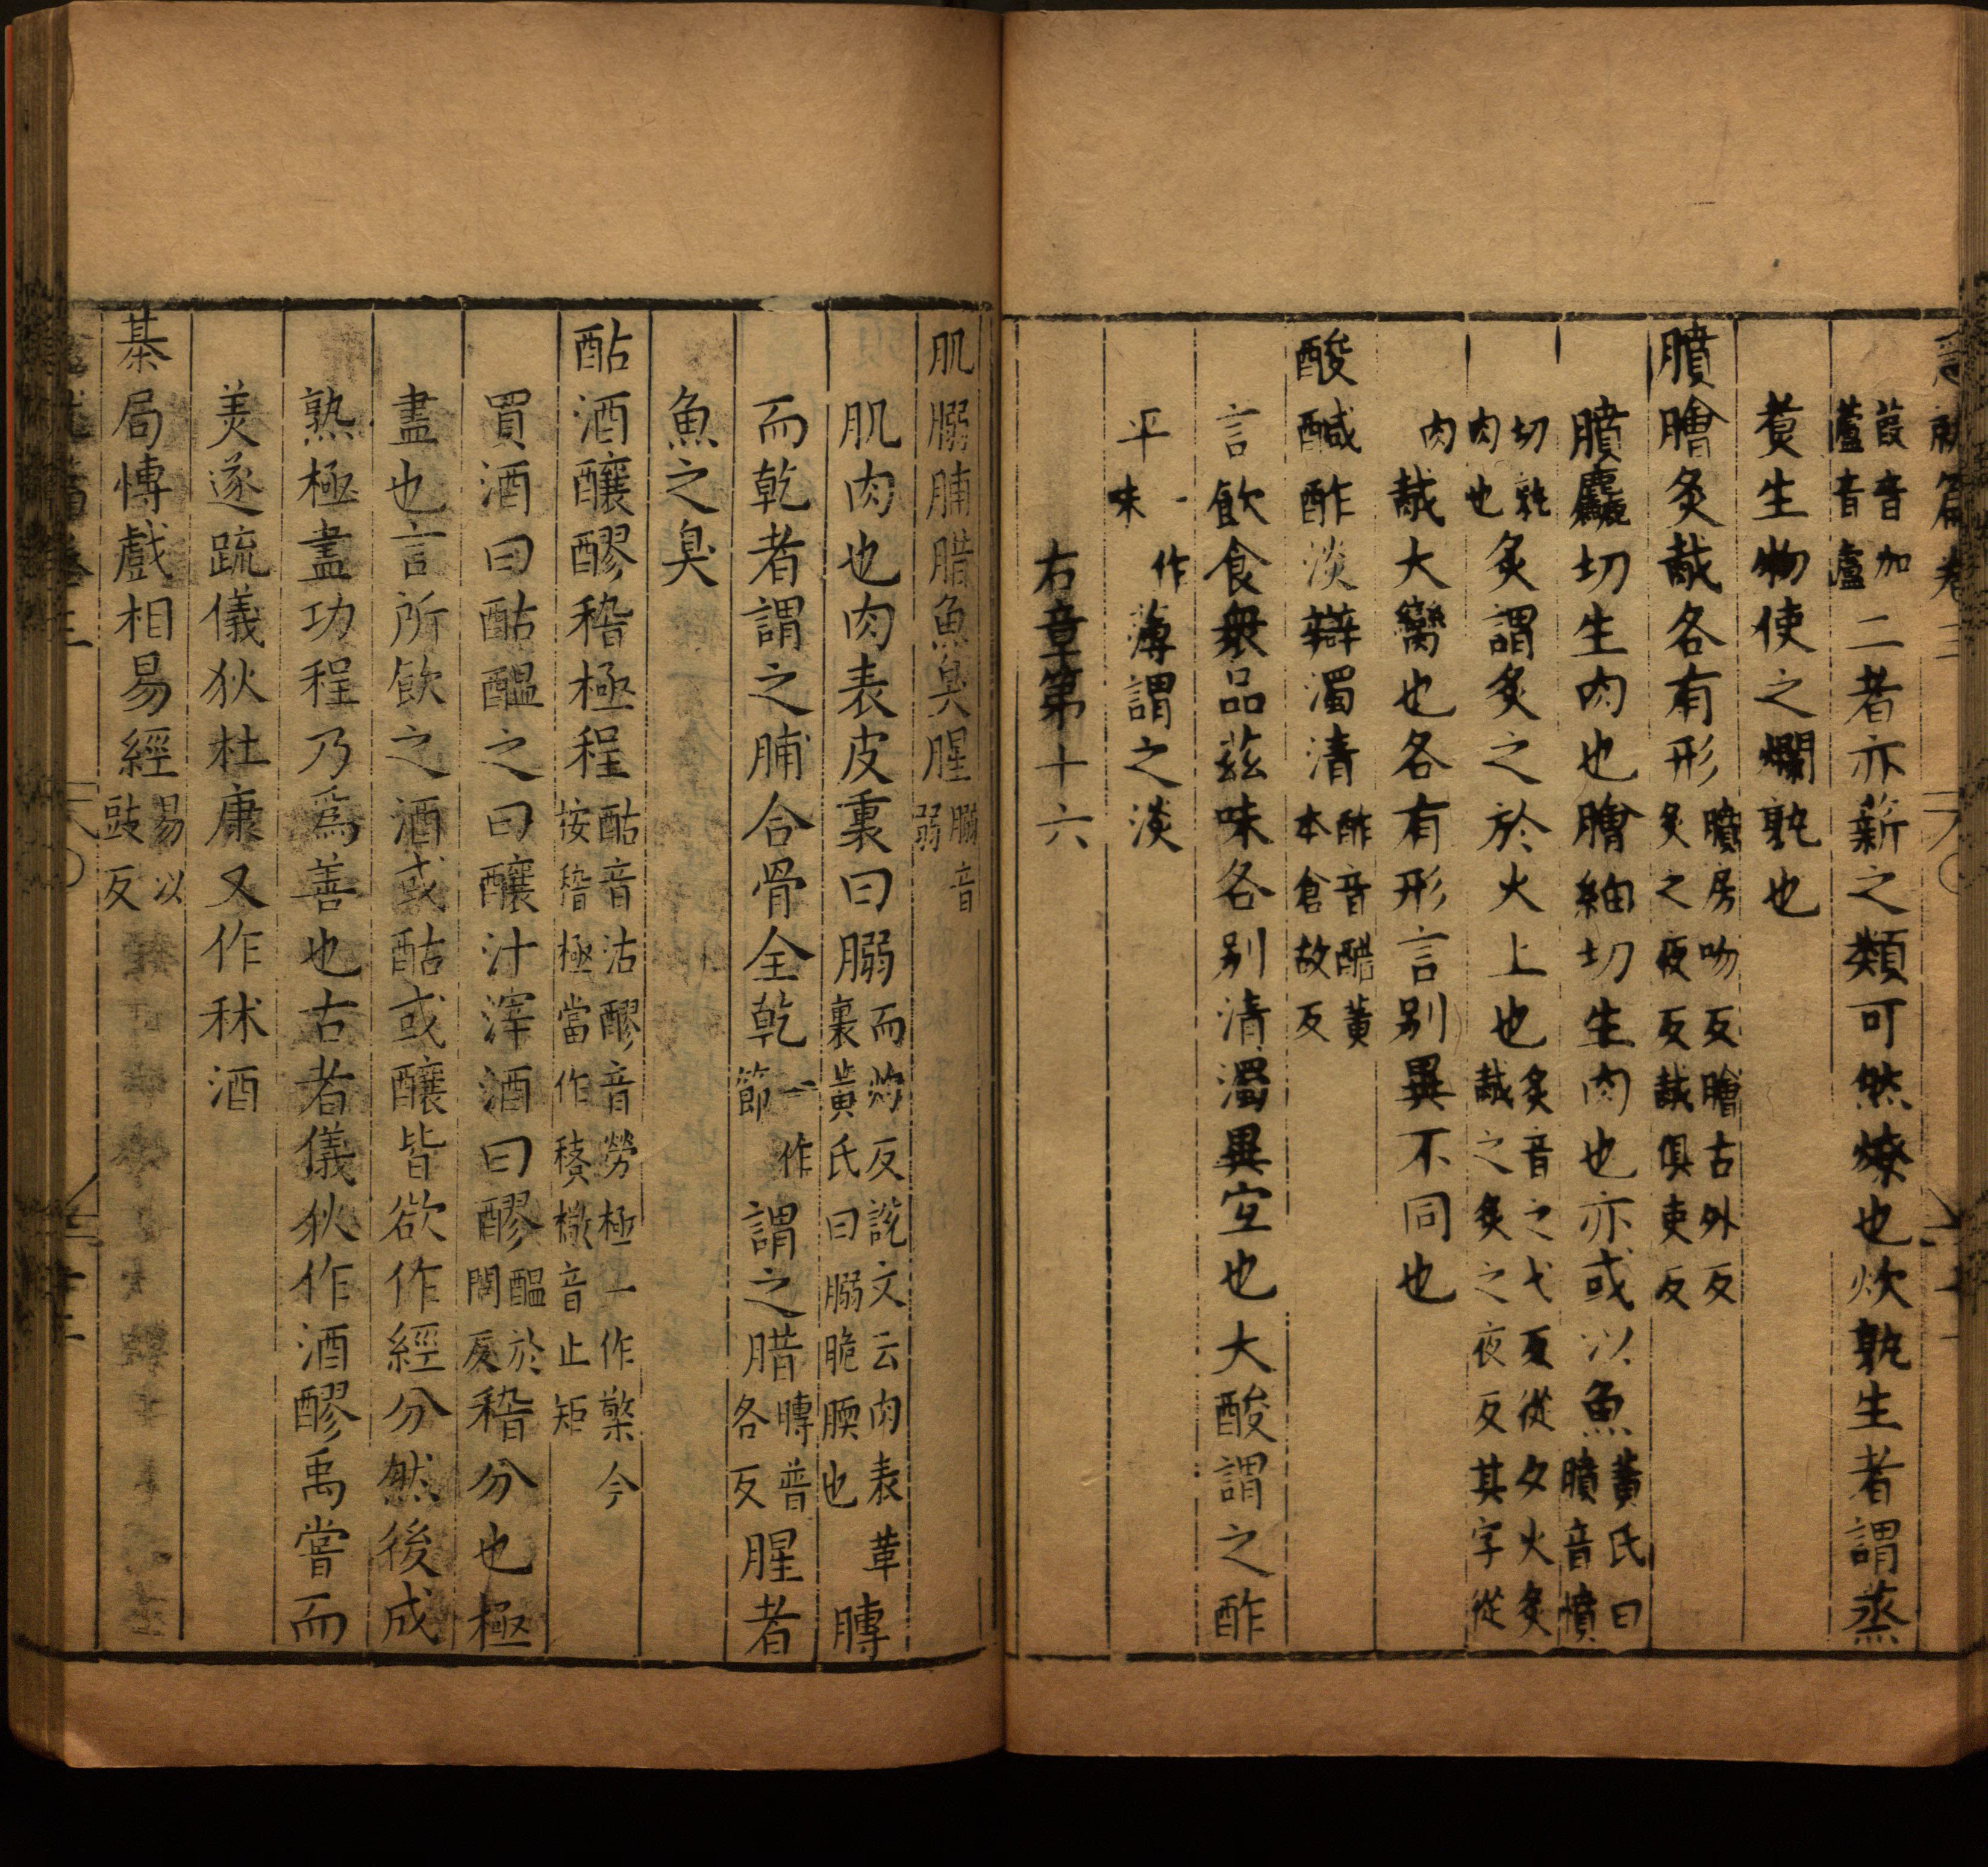 急就篇卷三
葭音加蘆音盧二者亦薪之類可然燎也炊孰生者謂蒸
煑生物使之爛孰也
膹膾炙胾各有形膹房吻反膾古外反炙之夜反胾俱吏反
膹麤切生肉也膾細切生肉也亦或以魚黃氏曰膹音憤
切孰肉也炙謂炙之於火上也炙音之弋反從夕火炙胾之炙之夜反其字從
肉胾大臠也各有形言別異不同也
酸醎酢淡辯濁清酢音醋黃本倉故反
言飲食衆品茲味各別清濁異宜也大酸謂之酢
平一作味薄謂之淡
右章第十六
肌䐞脯腊魚臭腥䐞音弱
肌肉也肉表皮裏曰䐞而灼反說文云肉表革裏黃氏曰䐞脆腝也膞
而乾者謂之脯合骨全乾一作節謂之腊膞普各反腥者
魚之臭
酤酒釀醪稽極程酤音沽醪音勞極一作檠今按稽極當作䅩㯳音止矩
買酒曰酤醞之曰釀汁滓酒曰醪醞於問反稽分也極
盡也言所飲之酒或酤或釀皆欲作經分然後成
熟極盡功程乃爲善也古者儀狄作酒醪禹嘗而
美遂疏儀狄杜康又作秫酒
棊局博戲相易經易以豉反